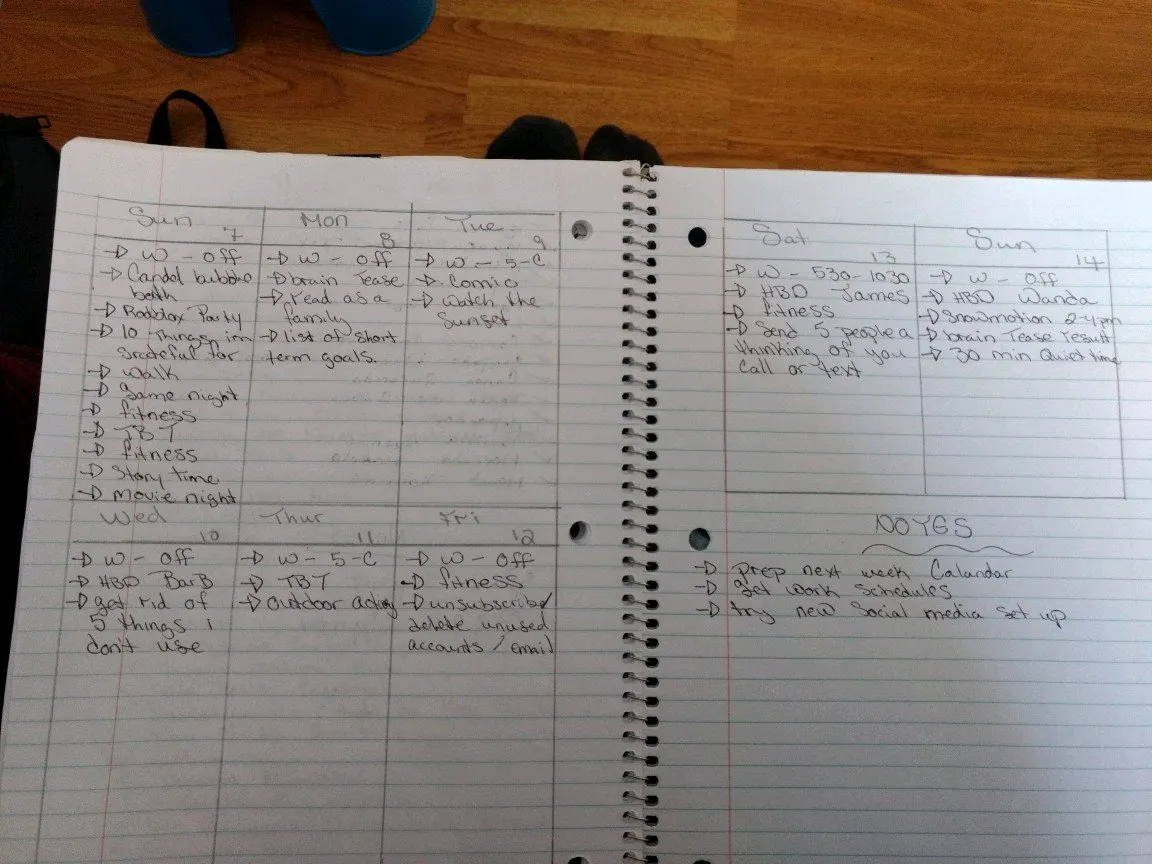 Sun
7
→ W - Off
→ Candel bubble
bath
→ Party
→ 10 things im
grateful for
→ walk
→ game night
→ fitness
→ TBT
→ fitness
→ Story time
→ movie night
Mon
8
→ W - Off
→ brain Tease
→ read as a
family
→ list of short
term goals.
Tue
9
→ W - 5-C
→ Comic
→ Watch the
Sunset
Wed
10
→ W - Off
→ HBD BarB
→ get rid of
5 things i
don't use
Thur
11
→ W - 5-C
→ TBT
→ Outdoor
Fri
12
→ W - Off
→ fitness
→ unsubscribe/
delete unused
accounts / email
Sat
13
→ W - 530-1030
→ HBD James
→ fitness
→ Send 5 people a
thinking of you
Call or text
Sun
14
→ W - Off
→ HBD Wanda
→ Snowmotion 2-4pm
→ brain Tease result
→ 30 min Quiet time
NOTES
→ Prep next week Calandar
→ get work Schedules
→ try new Social media set up